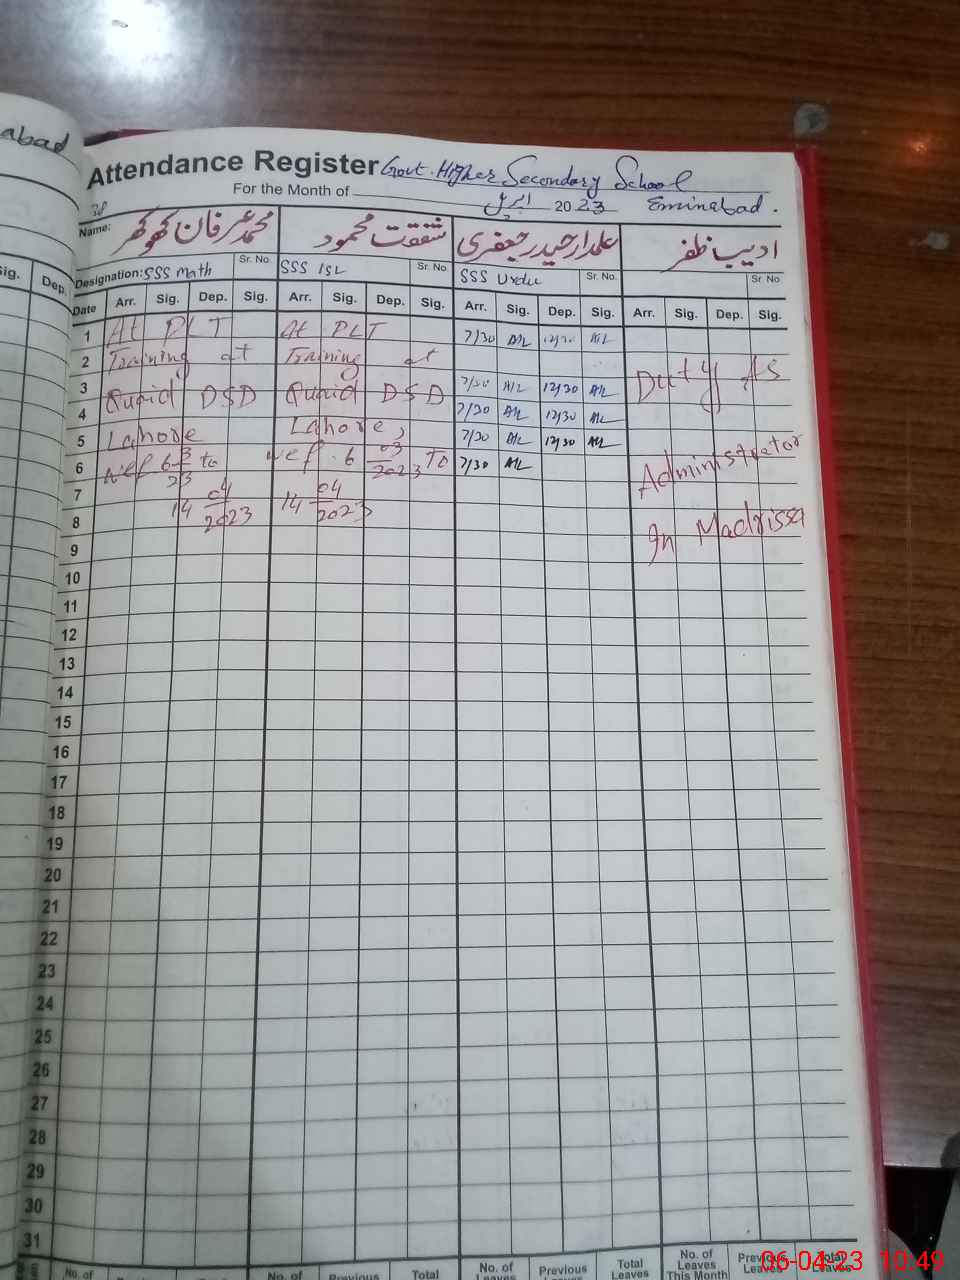 abad
Attendance Register Govt. Higher Secondary School
For the Month of اپریل 2023 Eminabad.
38
Name: محمد عرفان کھوکھر شفقت محمود علمدار حیدر جعفری ادیب ظفر
Sig. Dep. Designation: SSS Math Sr. No. SSS ISL Sr. No. SSS Urdu Sr. No. Sr. No.
Date Arr. Sig. Dep. Sig. Arr. Sig. Dep. Sig. Arr. Sig. Dep. Sig. Arr. Sig. Dep. Sig.
1 At PLT At PLT 7/30 12/30
2 Training at Training at
3 Quaid DSD Quaid DSD 7/30 12/30 Duty As
4 7/30 12/30
5 Lahore Lahore, 7/30 12/30
6 wef 6 3/23 to wef. 6 03/2023 To 7/30 Administrator
7 14 04/2023 14 04/2023
8 In Madrissa
9
10
11
12
13
14
15
16
17
18
19
20
21
22
23
24
25
26
27
28
29
30
31
No. of Total No. of Previous Total No. of Leaves Previous Leaves Total Leaves No. of Leaves This Month Previous Leaves Total Leaves
06-04-23 10:49